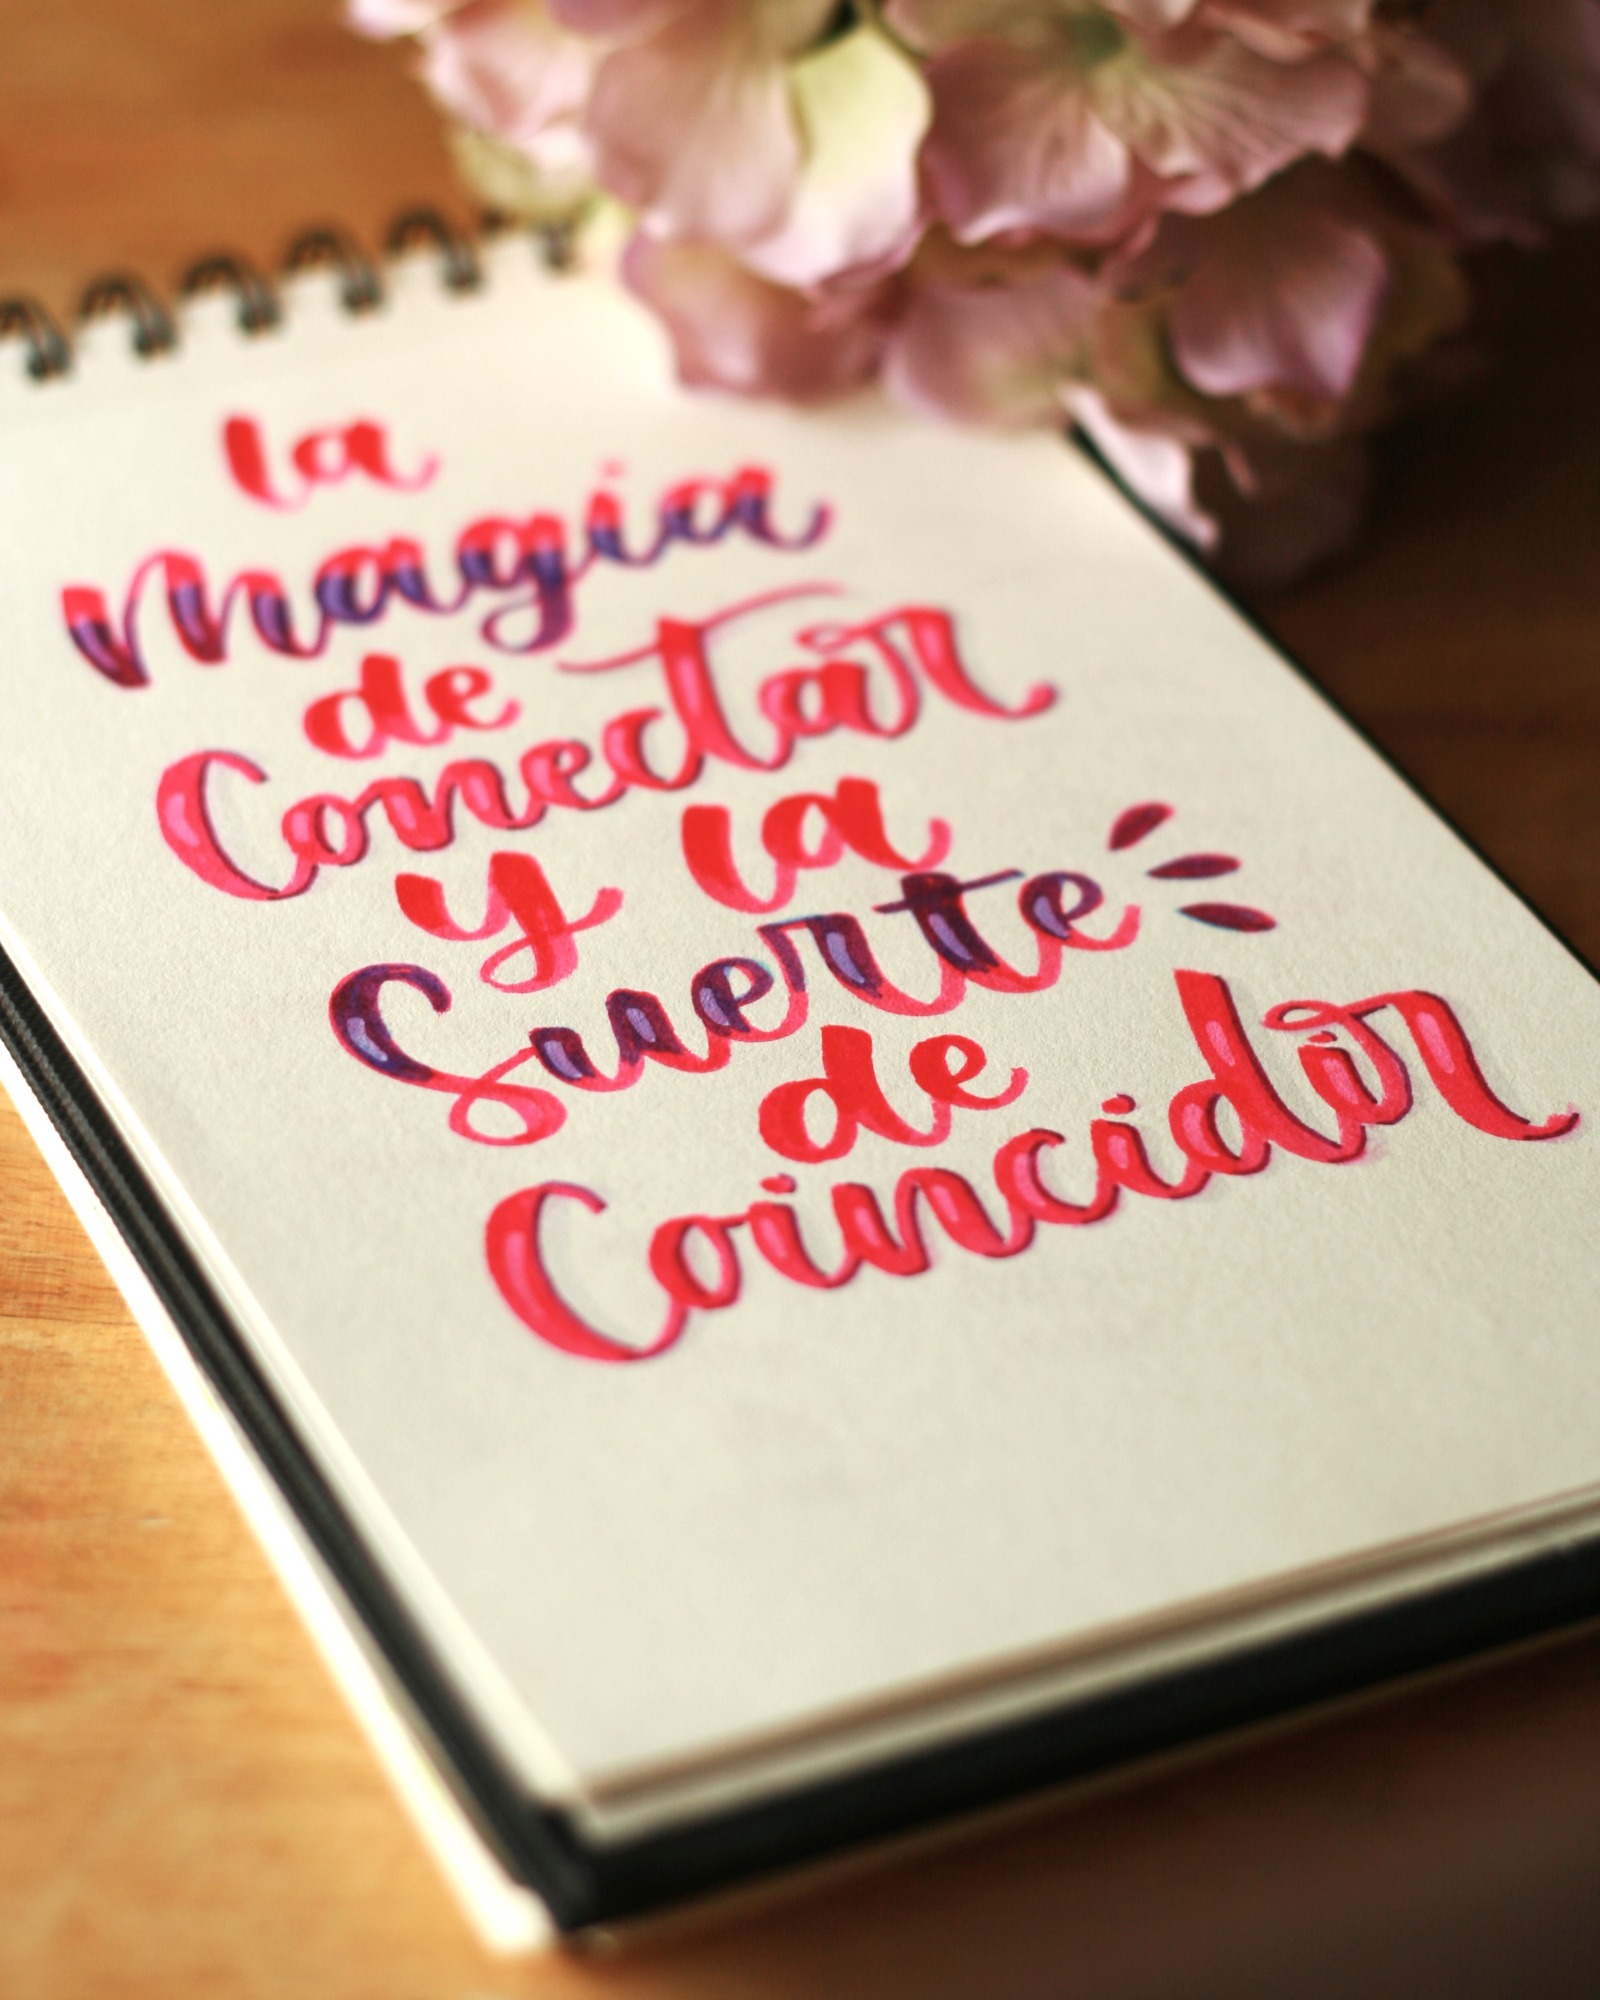 la
magia
de
Conectar
y la
Suerte
de
Coincidir